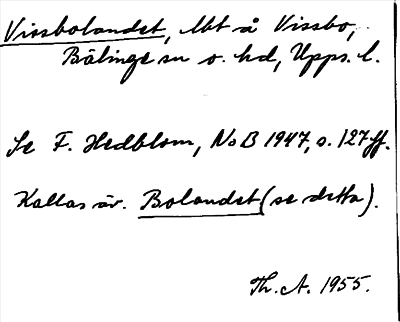 Vissbolandet, lbt å Vissbo,
Bälinge sn o. hd, Upps. l.
Se F. Hedblom, NoB 1947, s. 127 ff.
Kallas äv. Bolandet (se detta).
Th. A. 1955.